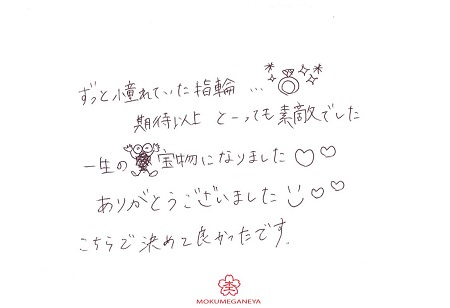 ずっと憧れていた指輪…
期待以上 とーっても素敵でした
一生の宝物になりました♡♡
ありがとうございました♡♡
こちらで決めて良かったです。
杢
MOKUMEGANEYA